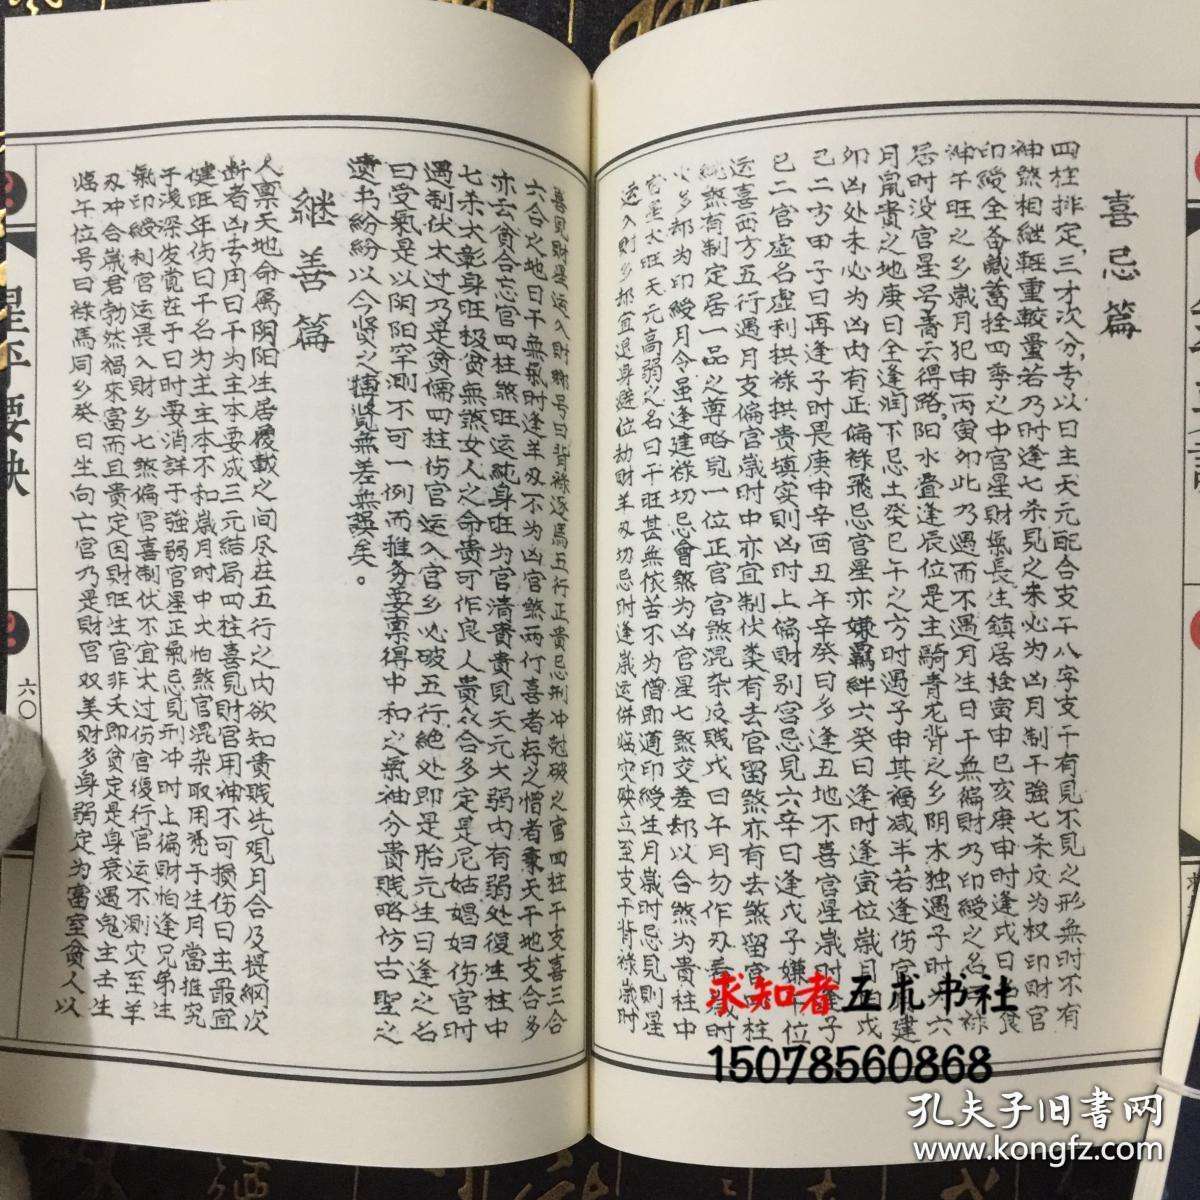 喜忌篇
四柱排定,三才次分,专以日主天元配合支干八字支干有見不見之形無时不有
神煞相継輕重較量若乃时逢七杀見之未必为凶月制干強七杀反为权印财官
印綬全备藏蓄拴四季之中官星财氣長生鎮居拴寅申巳亥庚申时逢戊日
神干旺之乡歲月犯甲丙寅卯此乃遇而不遇月生日干無偏财乃印綬之名
居时没官星号青云得路,阳水叠逢辰位是主騎青花背之乡阴木独遇子时为六
月鼠貴之地庚日全逢润下忌土癸巳午之方时遇子申其福减半若逢伤官月建
如凶处未必为凶内有正偏祿飛忌官星亦嫌羈絆六癸日逢时逢寅位歲月怕戊
己二方甲子日再逢子时畏庚申辛酉丑午辛癸日多逢丑地不喜官星歲时逢子
巳二官虛名虛利拱祿拱貴填实則凶时上偏财别宫忌見六辛日逢戊子嫌午位
运喜西方五行遇月支偏官歲时中亦宜制伏类有去官留煞亦有去煞留官四柱
純煞有制定居一品之尊略見一位正官官煞混杂反贱戊日午月勿作刃看歲时
火多却为印綬月令虽逢建祿切忌會煞为凶官星七煞交差却以合煞为貴柱中
官星太旺天元高弱之名日干旺甚無依若不为僧即道印綬生月歲时忌見則星
运入則乡却宜退身避位劫财羊刃切忌时逢歲运併临灾殃立至支干背祿歲时
喜見财星运入财乡号曰背祿逐馬五行正貴忌刑冲尅破之官四柱干支喜三合
六合之地日干無氣时逢羊刃不为凶官煞两行喜者存之憎者棄天干地支合多
亦云贪合忘官四柱煞旺运純身旺为官清貴貴見天元大弱内有弱处復生柱中
七杀太彰身旺极贫無煞女人之命貴可作良人貴众合多定是尼姑娼妇伤官时
遇制伏太过乃是贫儒四柱伤官运入官乡必破五行絶处即是胎元生日逢之名
曰受氣是以阴阳罕测不可一例而推务要禀得中和之氣神分貴贱略仿古聖之
遺书紛紛以今贤之博览無差無誤矣。
継善篇
人禀天地命属阴阳生居覆載之间尽在五行之内欲知貴贱先观月合及提綱次
断者凶专用日干为主本要成三元结局四柱喜見财官用神不可损伤日主最宜
健旺年伤日干名为主主本不和歲月时中大怕煞官混杂取用凭于生月當推究
于浅深发觉在于日时要消詳于強弱官星正氣忌見刑冲时上偏财怕逢兄弟生
氣印綬利官运畏入财乡七煞偏官喜制伏不宜太过伤官復行官运不测灾至羊
刃冲合歲君勃然禍來富而且貴定因财旺生官非夭即贫定是身衰遇鬼主壬生
临午位号曰祿馬同乡癸日生向亡宫乃是财官双美财多身弱定为富室贫人以
星平要訣
六〇
求知者五术书社
15078560868
孔夫子旧书网
www.kongfz.com